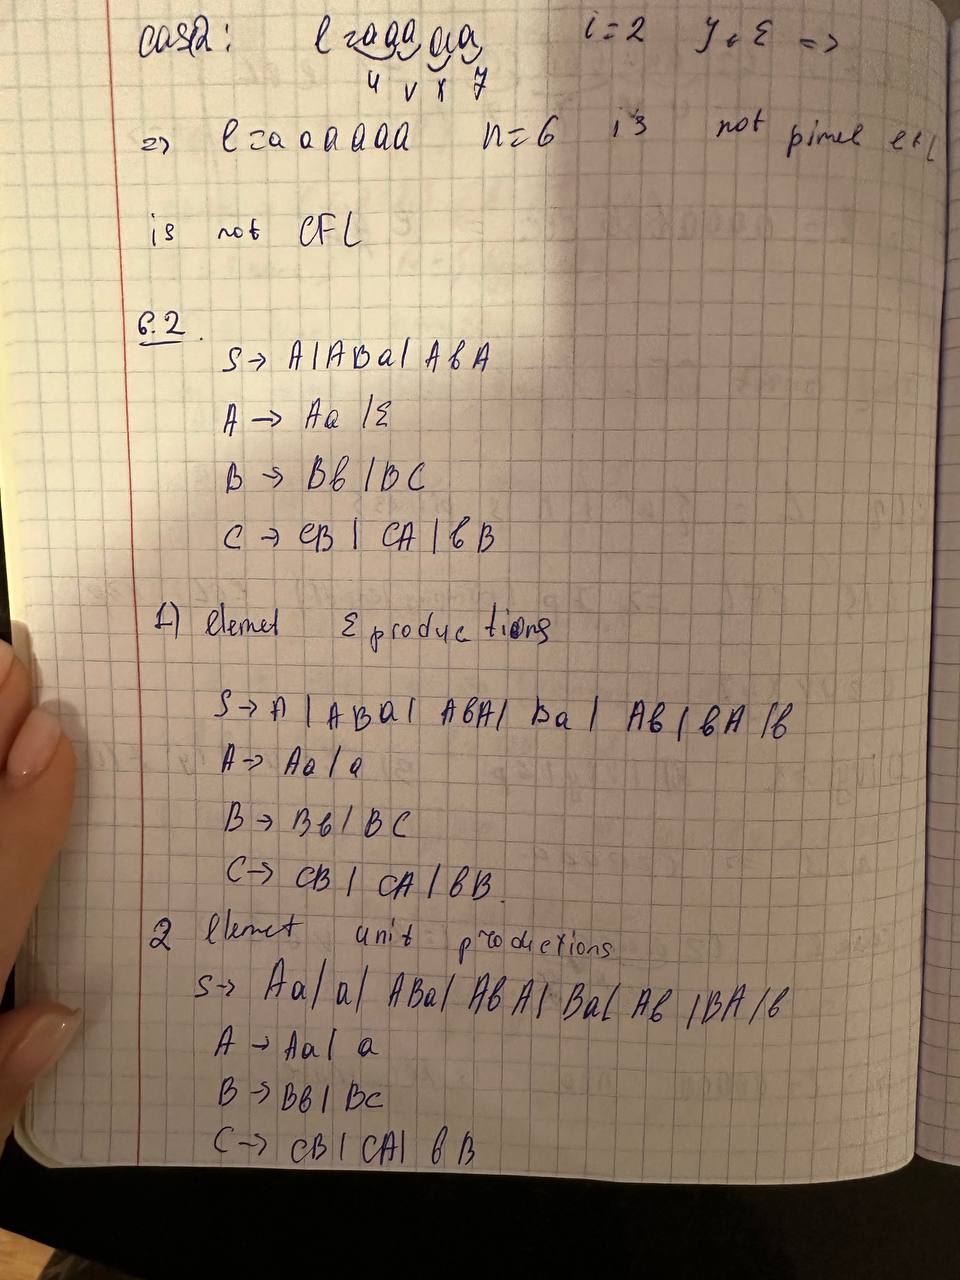 case2: l=aaaaa i=2 y≠ε =>
u v x y
=> l=aaaaaa n=6 is not
is not CFL
6.2.
S→ A | ABa | AbA
A → Aa | ε
B → Bb | BC
C → CB | CA | bB
1) elemet ε productions
S→ A | ABa | AbA | Ba | Ab | bA | b
A→ Aa | a
B→ Bb | BC
C→ CB | CA | bB
2 elemet unit productions
S→ Aa | a | ABa | AbA | Ba | Ab | BA | b
A → Aa | a
B → Bb | BC
C → CB | CA | bB